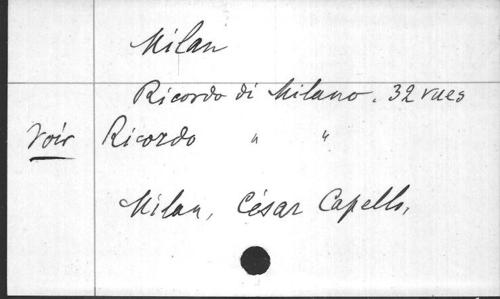 Milan
Ricordo di Milano. 32 vues
Voir Ricordo " "
Milan, César Capello,